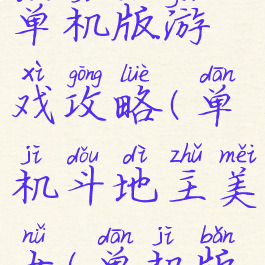 单机版游
xì gōng lüè dān
戏攻略(单
jī dǒu dì zhǔ měi
机斗地主美
nǚ dān jī bǎn
女(单机版